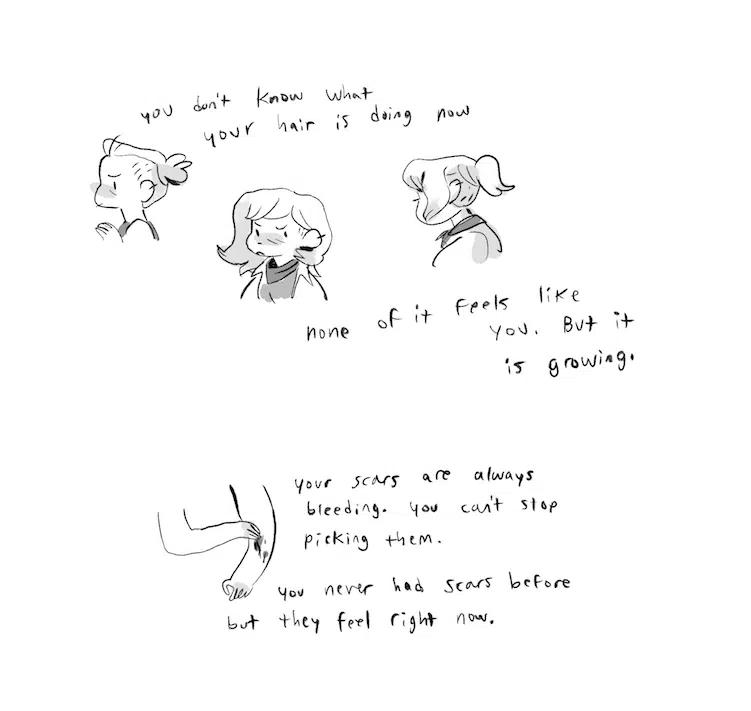 you don't know what
your hair is doing now
none of it feels like
you. But it
is growing.
your scars are always
bleeding. you can't stop
picking them.
you never had scars before
but they feel right now.